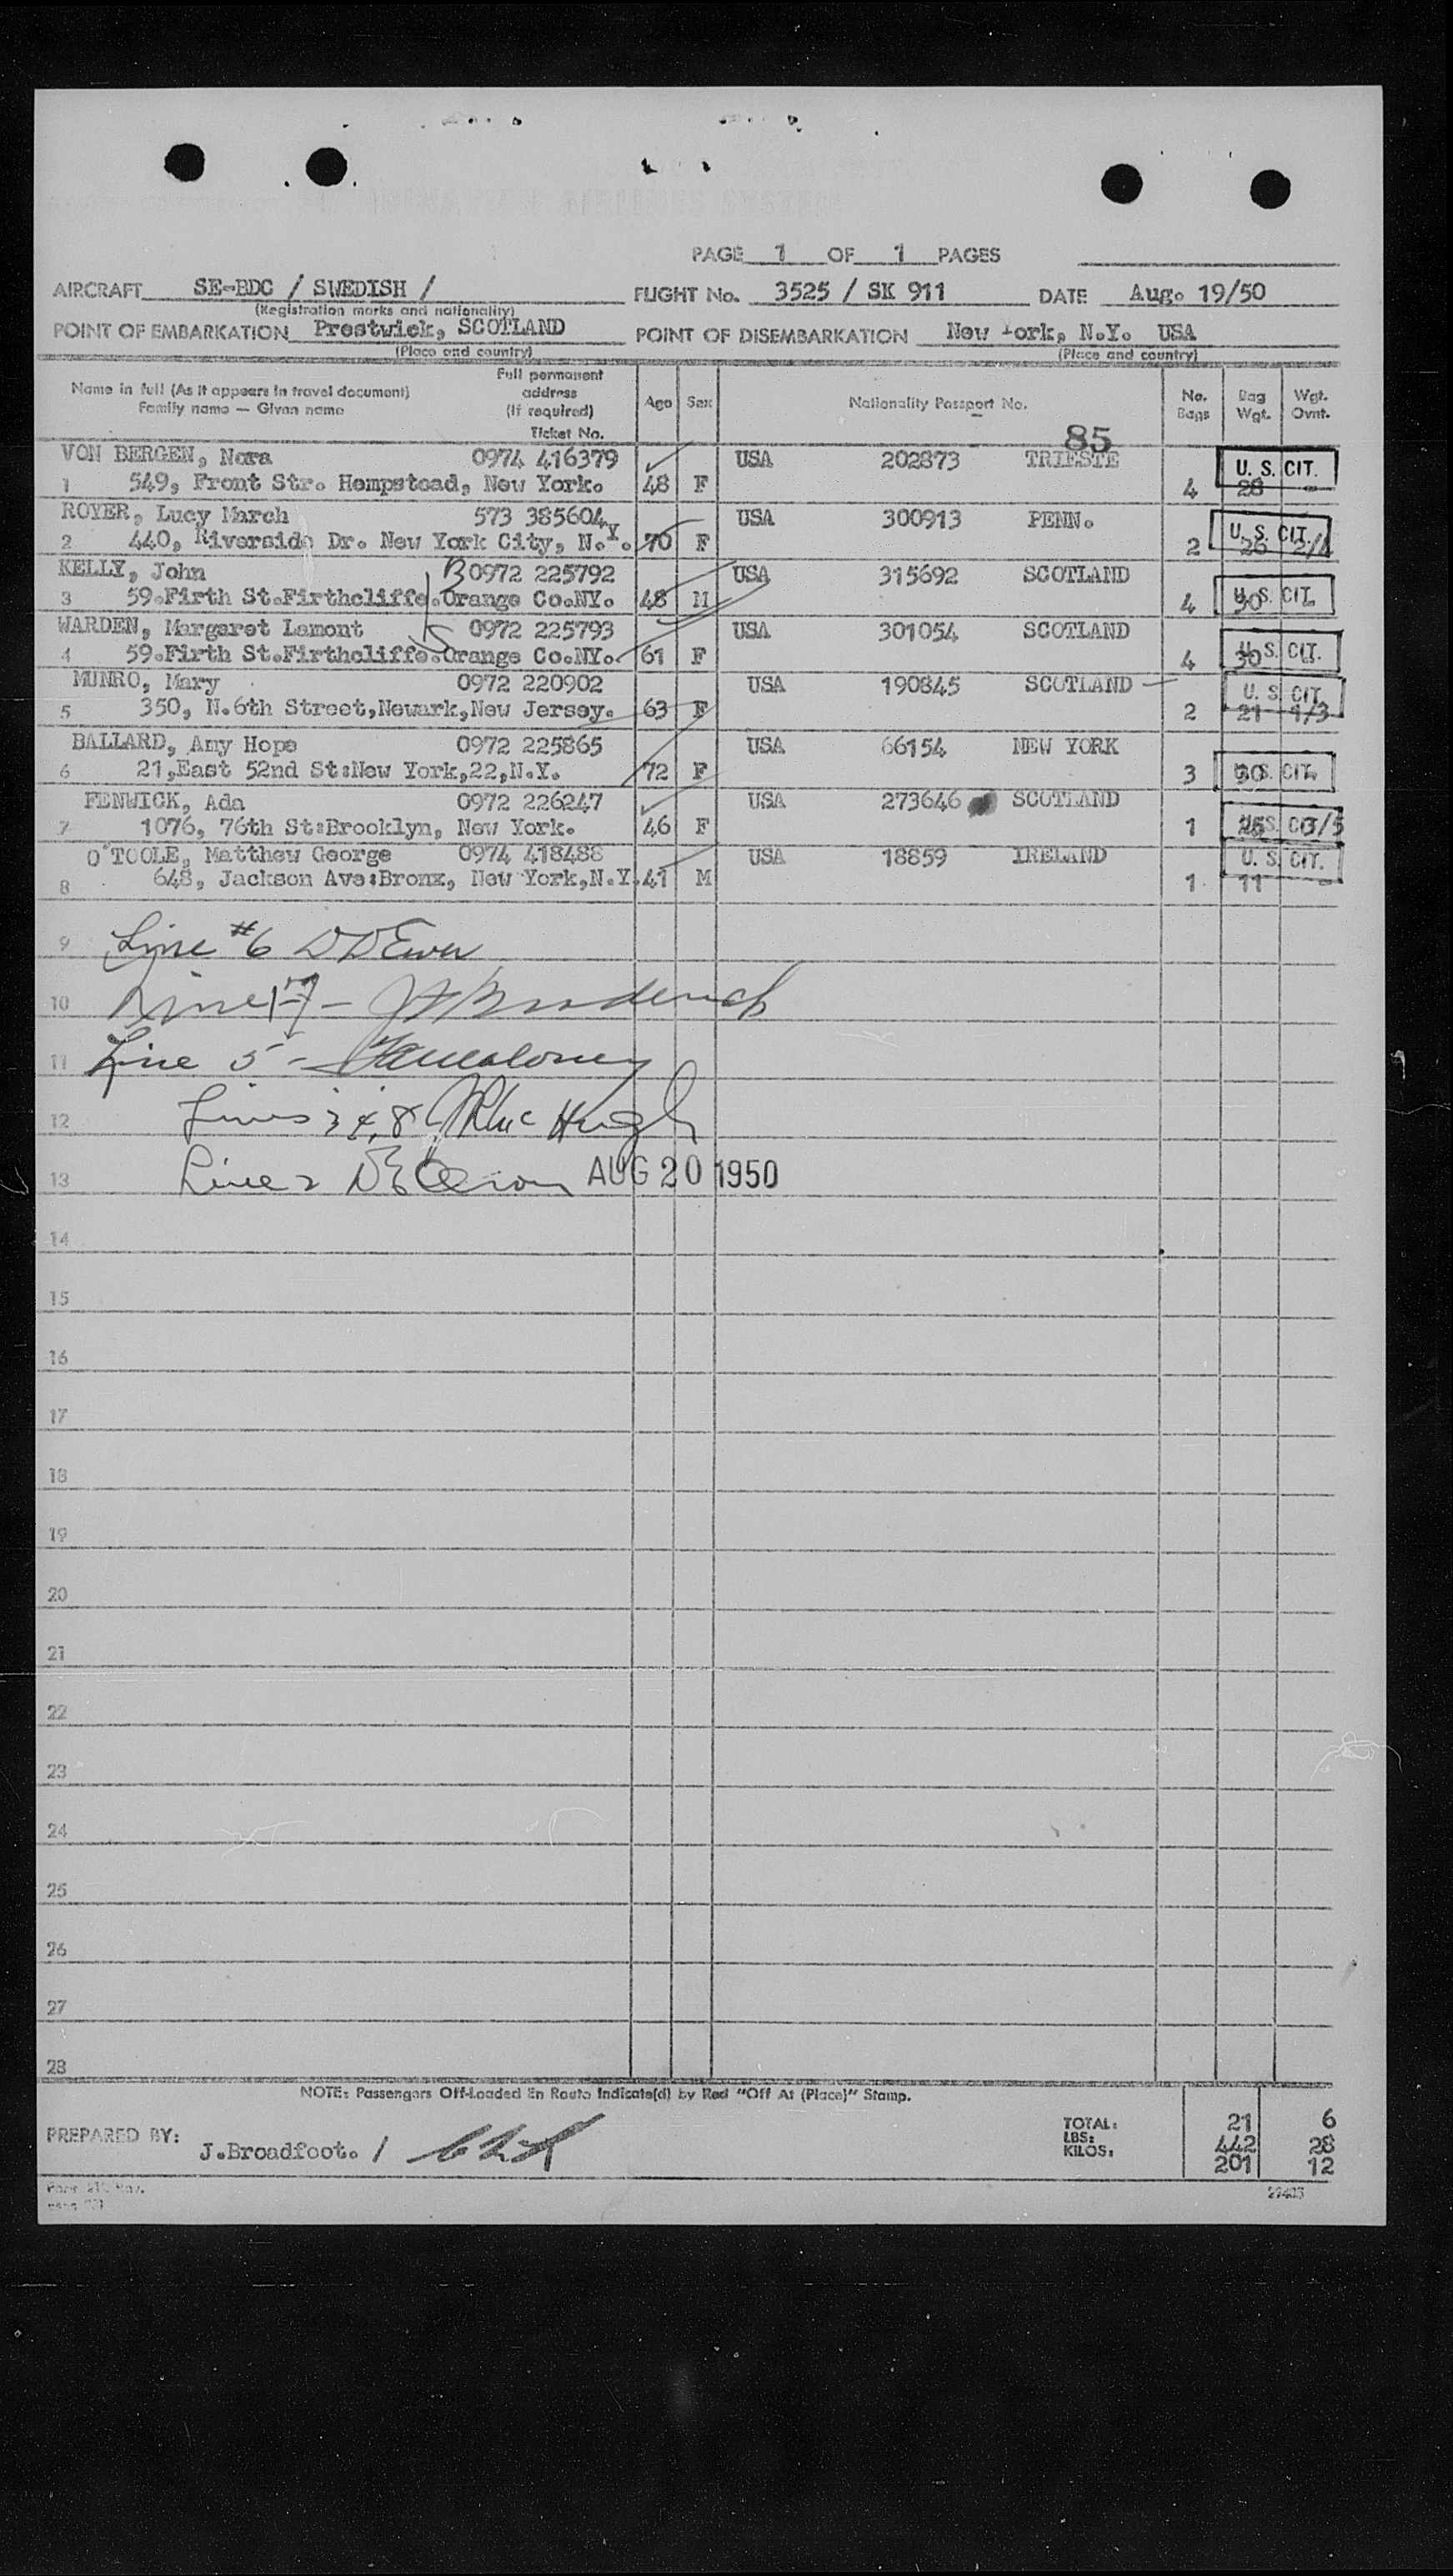 PAGE 1 OF 1 PAGES
AIRCRAFT SE-BDC / SWEDISH / FLIGHT No. 3525 / SK 911 DATE Aug. 19/50
(Registration marks and nationality)
POINT OF EMBARKATION Prestwick, SCOTLAND POINT OF DISEMBARKATION New York, N.Y. USA
(Place and country) (Place and country)
Name in full (As it appears in travel document) Family name — Given name Full permanent address (If required) Ticket No. Age Sex Nationality Passport No. No. Bags Bag Wgt. Wgt. Ovnt.
85
VON BERGEN, Nora 0974 416379 USA 202873 TRIESTE U. S. CIT.
1 549, Front Str. Hempstead, New York. 48 F 4 28 -
ROYER, Lucy March 573 385604 USA 300913 PENN. U. S. CIT.
2 440, Riverside Dr. New York City, N.Y. 70 F 2 26 2/4
KELLY, John B 0972 225792 USA 315692 SCOTLAND
3 59.Firth St.Firthcliffe.Orange Co.NY. 48 M 4 30 U. S. CIT.
WARDEN, Margaret Lamont 0972 225793 USA 301054 SCOTLAND
4 59.Firth St.Firthcliffe.Orange Co.NY. 61 F 4 30 U. S. CIT.
MUNRO, Mary 0972 220902 USA 190845 SCOTLAND U. S. CIT.
5 350, N.6th Street,Newark,New Jersey. 63 F 2 21 1/3
BALLARD, Amy Hope 0972 225865 USA 66154 NEW YORK
6 21,East 52nd St:New York,22,N.Y. 72 F 3 30 U. S. CIT.
FENWICK, Ada 0972 226247 USA 273646 SCOTLAND
7 1076, 76th St:Brooklyn, New York. 46 F 1 25 U. S. CIT. 3/5
O'TOOLE, Matthew George 0974 418488 USA 18859 IRELAND U. S. CIT.
8 648, Jackson Ave:Bronx, New York,N.Y. 41 M 1 11 -
9 Line #6
10 Line 1-7 -
11 Line 5 -
12 Lines 3 4, 8 Mc Hugh
13 Line 2 AUG 20 1950
14
15
16
17
18
19
20
21
22
23
24
25
26
27
28
NOTE: Passengers Off-Loaded En Route Indicate(d) by Red "Off At (Place)" Stamp.
PREPARED BY: J.Broadfoot. /
TOTAL: 21 6
LBS: 442 28
KILOS: 201 12
29403